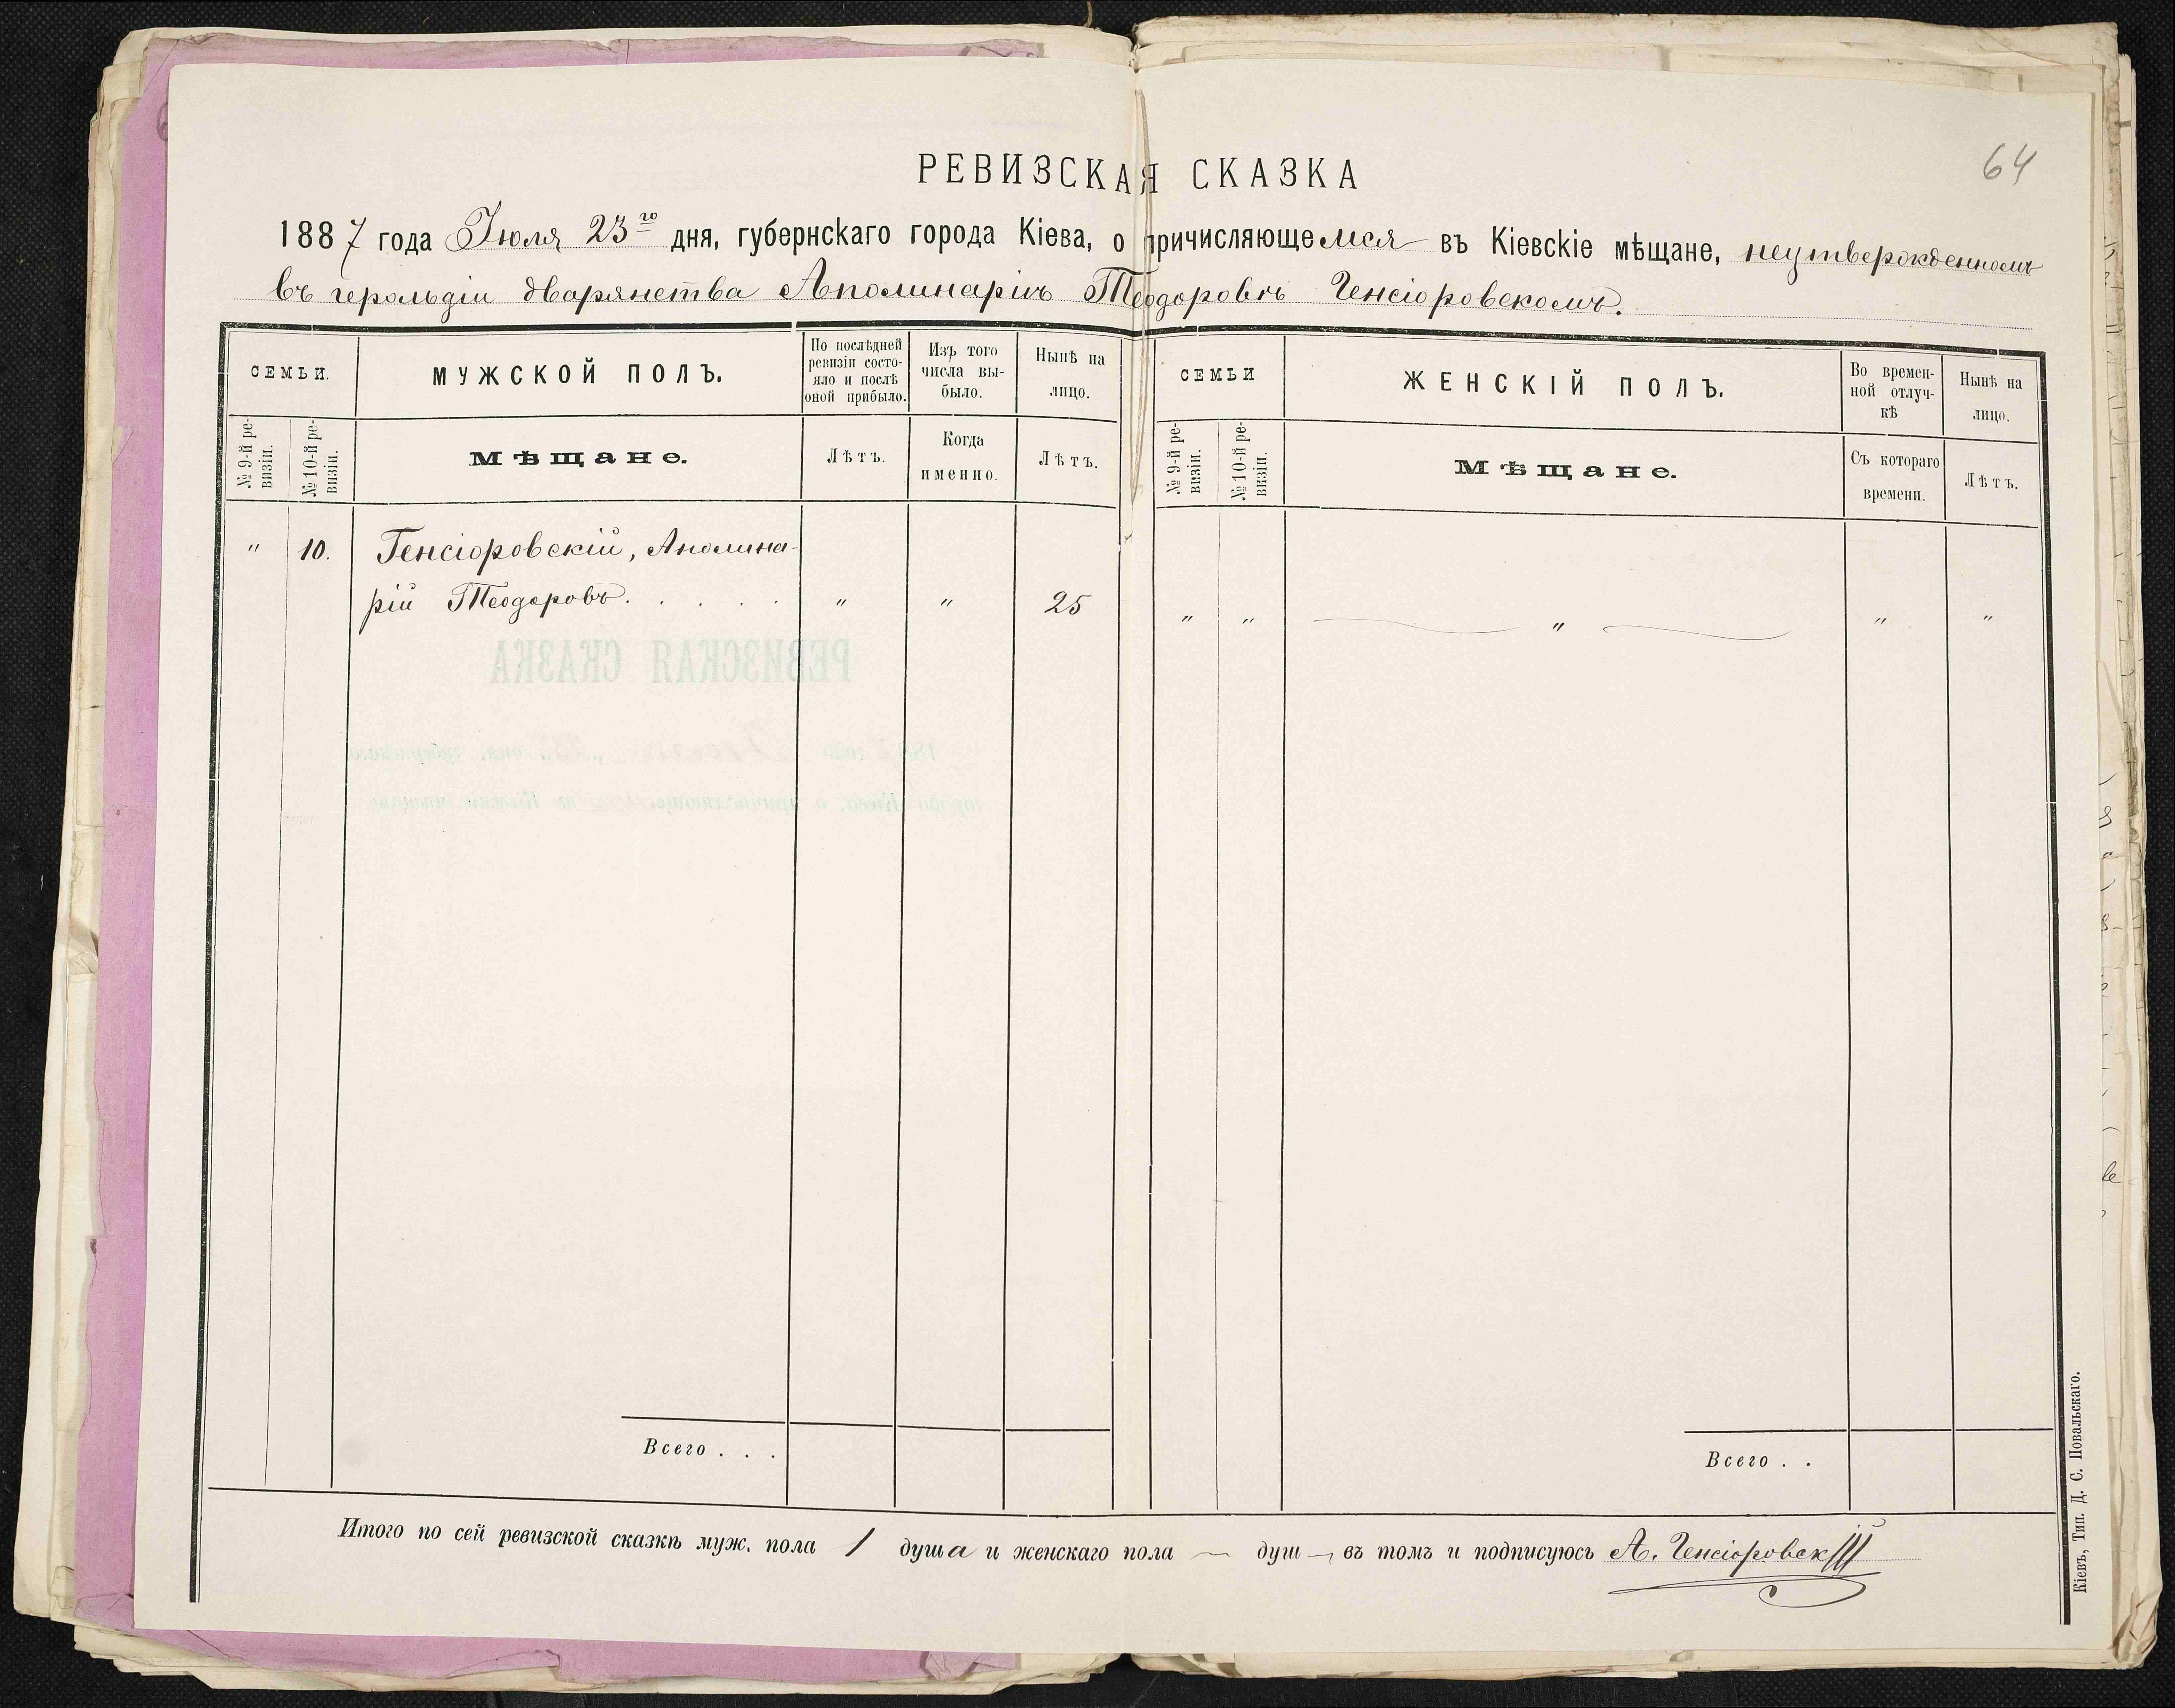 64
РЕВИЗСКАЯ СКАЗКА
1887 года Іюля 23го дня, губернскаго города Кіева, о причисляющемся въ Кіевскіе мѣщане, неутвержденномъ
въ герольдіи дворянства Аполинаріѣ Теодоровѣ Генсіоровскомъ.
СЕМЬИ.
МУЖСКОЙ ПОЛЪ.
По послѣдней
ревизіи состо-
яло и послѣ
оной прибыло.
Изъ того
числа вы-
было.
Нынѣ на
лицо.
СЕМЬИ
ЖЕНСКІЙ ПОЛЪ.
Во времен-
ной отлуч-
кѣ
Нынѣ на
лицо.
№ 9-й ре-
визіи.
№ 10-й ре-
визіи.
Мѣщане.
Лѣтъ.
Когда
именно.
Лѣтъ.
№ 9-й ре-
визіи.
№ 10-й ре-
визіи.
Мѣщане.
Съ котораго
времени.
Лѣтъ.
" 10. Генсіоровскій, Аполина-
рій Теодоровъ. . . . . " " 25 " " " " "
РЕВИЗСКАЯ СКАЗКА
Всего . . .
Всего . .
Итого по сей ревизской сказкѣ муж. пола 1 душа и женскаго пола — душ —, въ томъ и подписуюсь А. Генсіоровскій
Кіевъ, Тип. Д. С. Повальскаго.